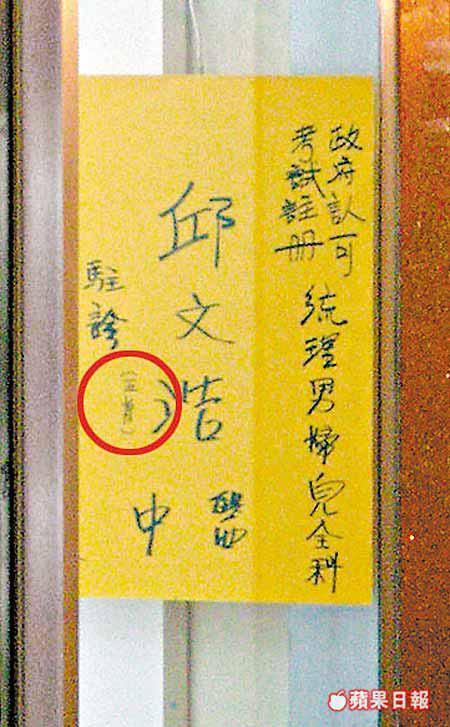 政府認可
考試註冊
統理男婦兒全科
邱文浩
中醫
駐診
蘋果日報